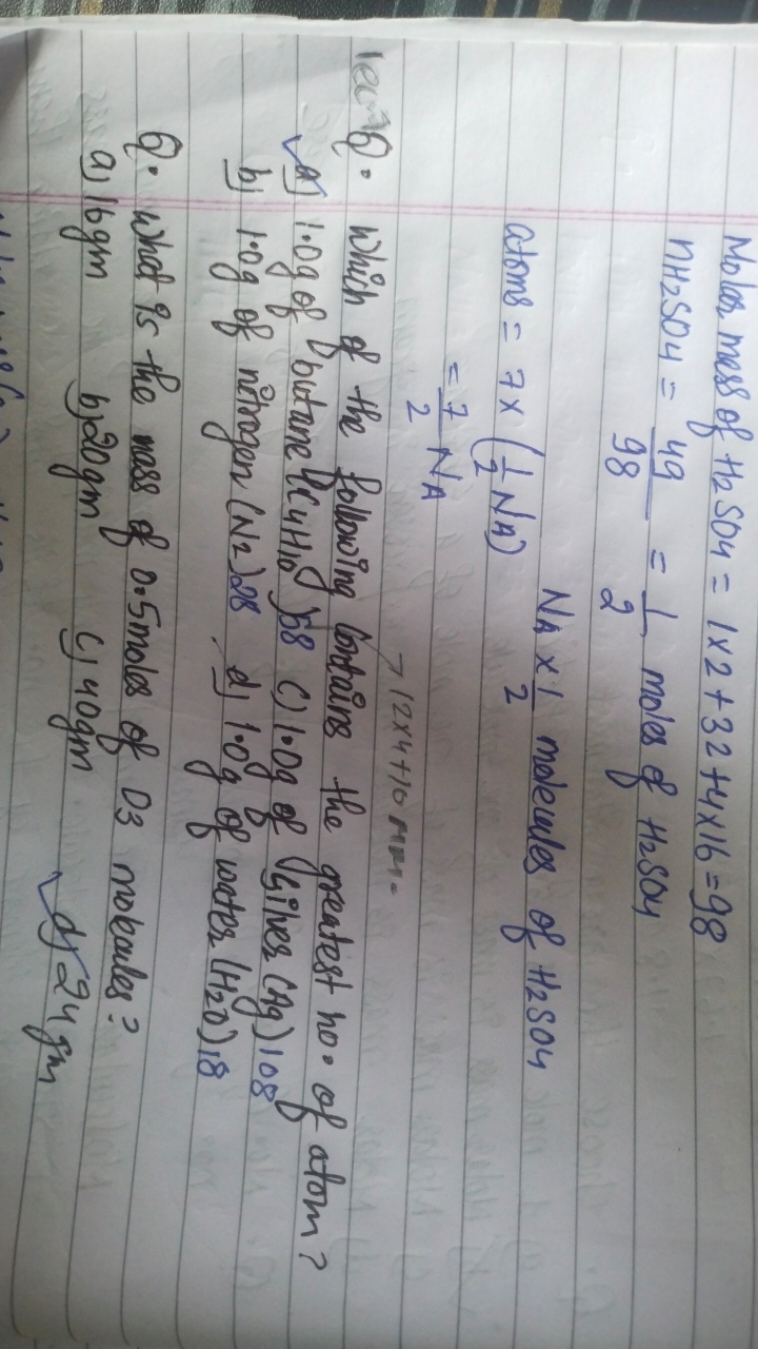 Molar mass of H2SO4 = 1x2 + 32 + 4x16 = 98
nH2SO4 = 49/98 = 1/2 moles of H2SO4
NA x 1/2 molecules of H2SO4
atoms = 7x (1/2 NA)
= 7/2 NA
→ 12x4+10
Q. which of the following contains the greatest no. of atom?
a) 1.0g of butane (C4H10) 58 c) 1.0g of Silver (Ag) 108
b) 1.0g of nitrogen (N2) 28 d) 1.0g of water (H2O) 18
Q. what is the mass of 0.5moles of O3 molecules?
a) 16gm b) 20gm c) 40gm d) 24gm